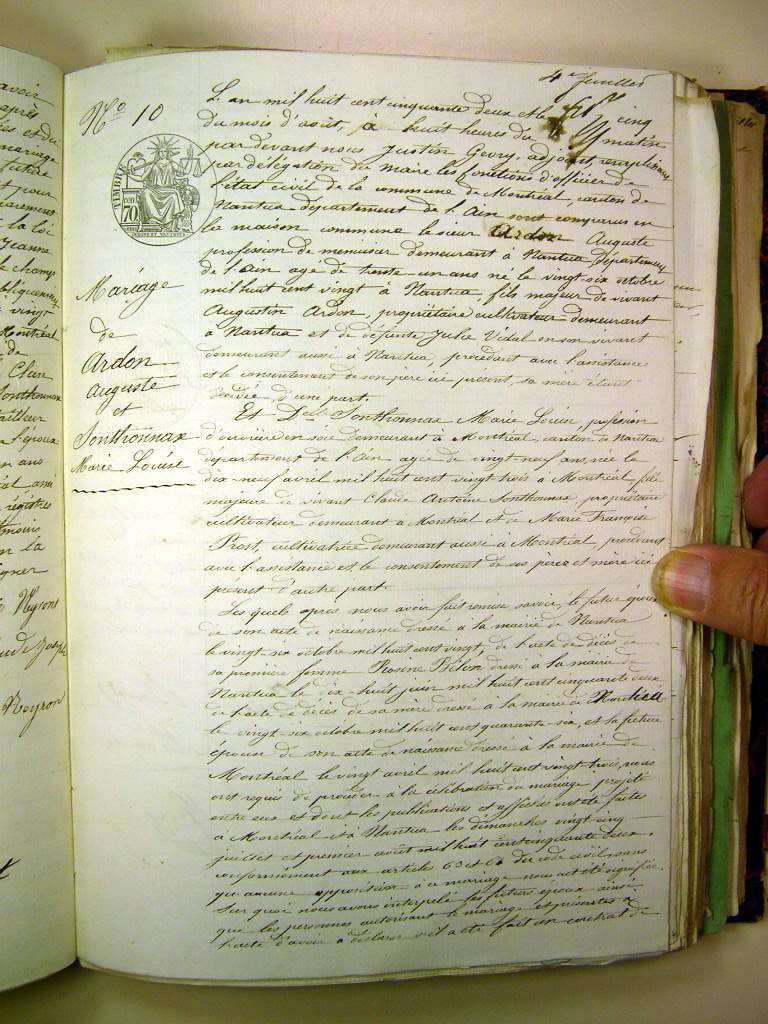 4e feuillet
No 10
TIMBRE
70
Mariage
de
Ardon
Auguste
et
Sonthonnax
Marie Louise
L'an mil huit cent cinquante deux et le cinq
du mois d'août, à huit heures du matin
par devant nous Justin Gevry, adjoint, remplissant
par délégation du maire les fonctions d'officier de
l'état civil de la commune de Montréal, canton de
Nantua département de l'Ain sont comparus en
la maison commune le sieur Ardon Auguste
profession de menuisier demeurant à Nantua département
de l'Ain age de trente un ans né le vingt six octobre
mil huit cent vingt à Nantua, fils majeur de vivant
Augustin Ardon, propriétaire cultivateur demeurant
à Nantua et de défunte Julie Vidal en son vivant
demeurant aussi à Nantua, procédant avec l'assistance
et le consentement de son père ici présent, sa mère étant
décédée, d'une part.
Et Dlle Sonthonnax Marie Louise, profession
d'ouvrière en soie demeurant à Montréal, canton de Nantua
département de l'Ain agée de vingt neuf ans, née le
dix neuf avril mil huit cent vingt trois à Montréal, fille
majeure de vivant Claude Antoine Sonthonnax, propriétaire
cultivateur demeurant à Montréal et de Marie Françoise
Prost, cultivatrice demeurant aussi à Montréal, procédant
avec l'assistance et le consentement de ses père et mère ici
présent d'autre part.
Les quels après nous avoir fait remise, savoir, le futur époux
de son acte de naissance dressé à la mairie de Nantua
le vingt six octobre mil huit cent vingt, de l'acte de décès de
sa première femme Rosine dressé à la mairie de
Nantua le dix huit juin mil huit cent cinquante deux
de l'acte de décès de sa mère dressé à la mairie de Nantua
le vingt six octobre mil huit cent quarante six, et la future
épouse de son acte de naissance dressé à la mairie de
Montréal le vingt avril mil huit cent vingt trois, nous
ont requis de procéder à la célébration du mariage projeté
entre eux et dont les publications et affiches ont été faites
à Montréal et à Nantua les dimanches vingt cinq
juillet et premier août mil huit cent cinquante deux,
conformément aux articles 63 et 64 du code civil, sans
qu'aucune opposition à ce mariage nous ait été signifiée.
Sur quoi nous avons interpelé les futurs époux ainsi
que les personnes autorisant le mariage et présentes à
l'acte d'avoir à déclarer s'il a été fait un contrat de